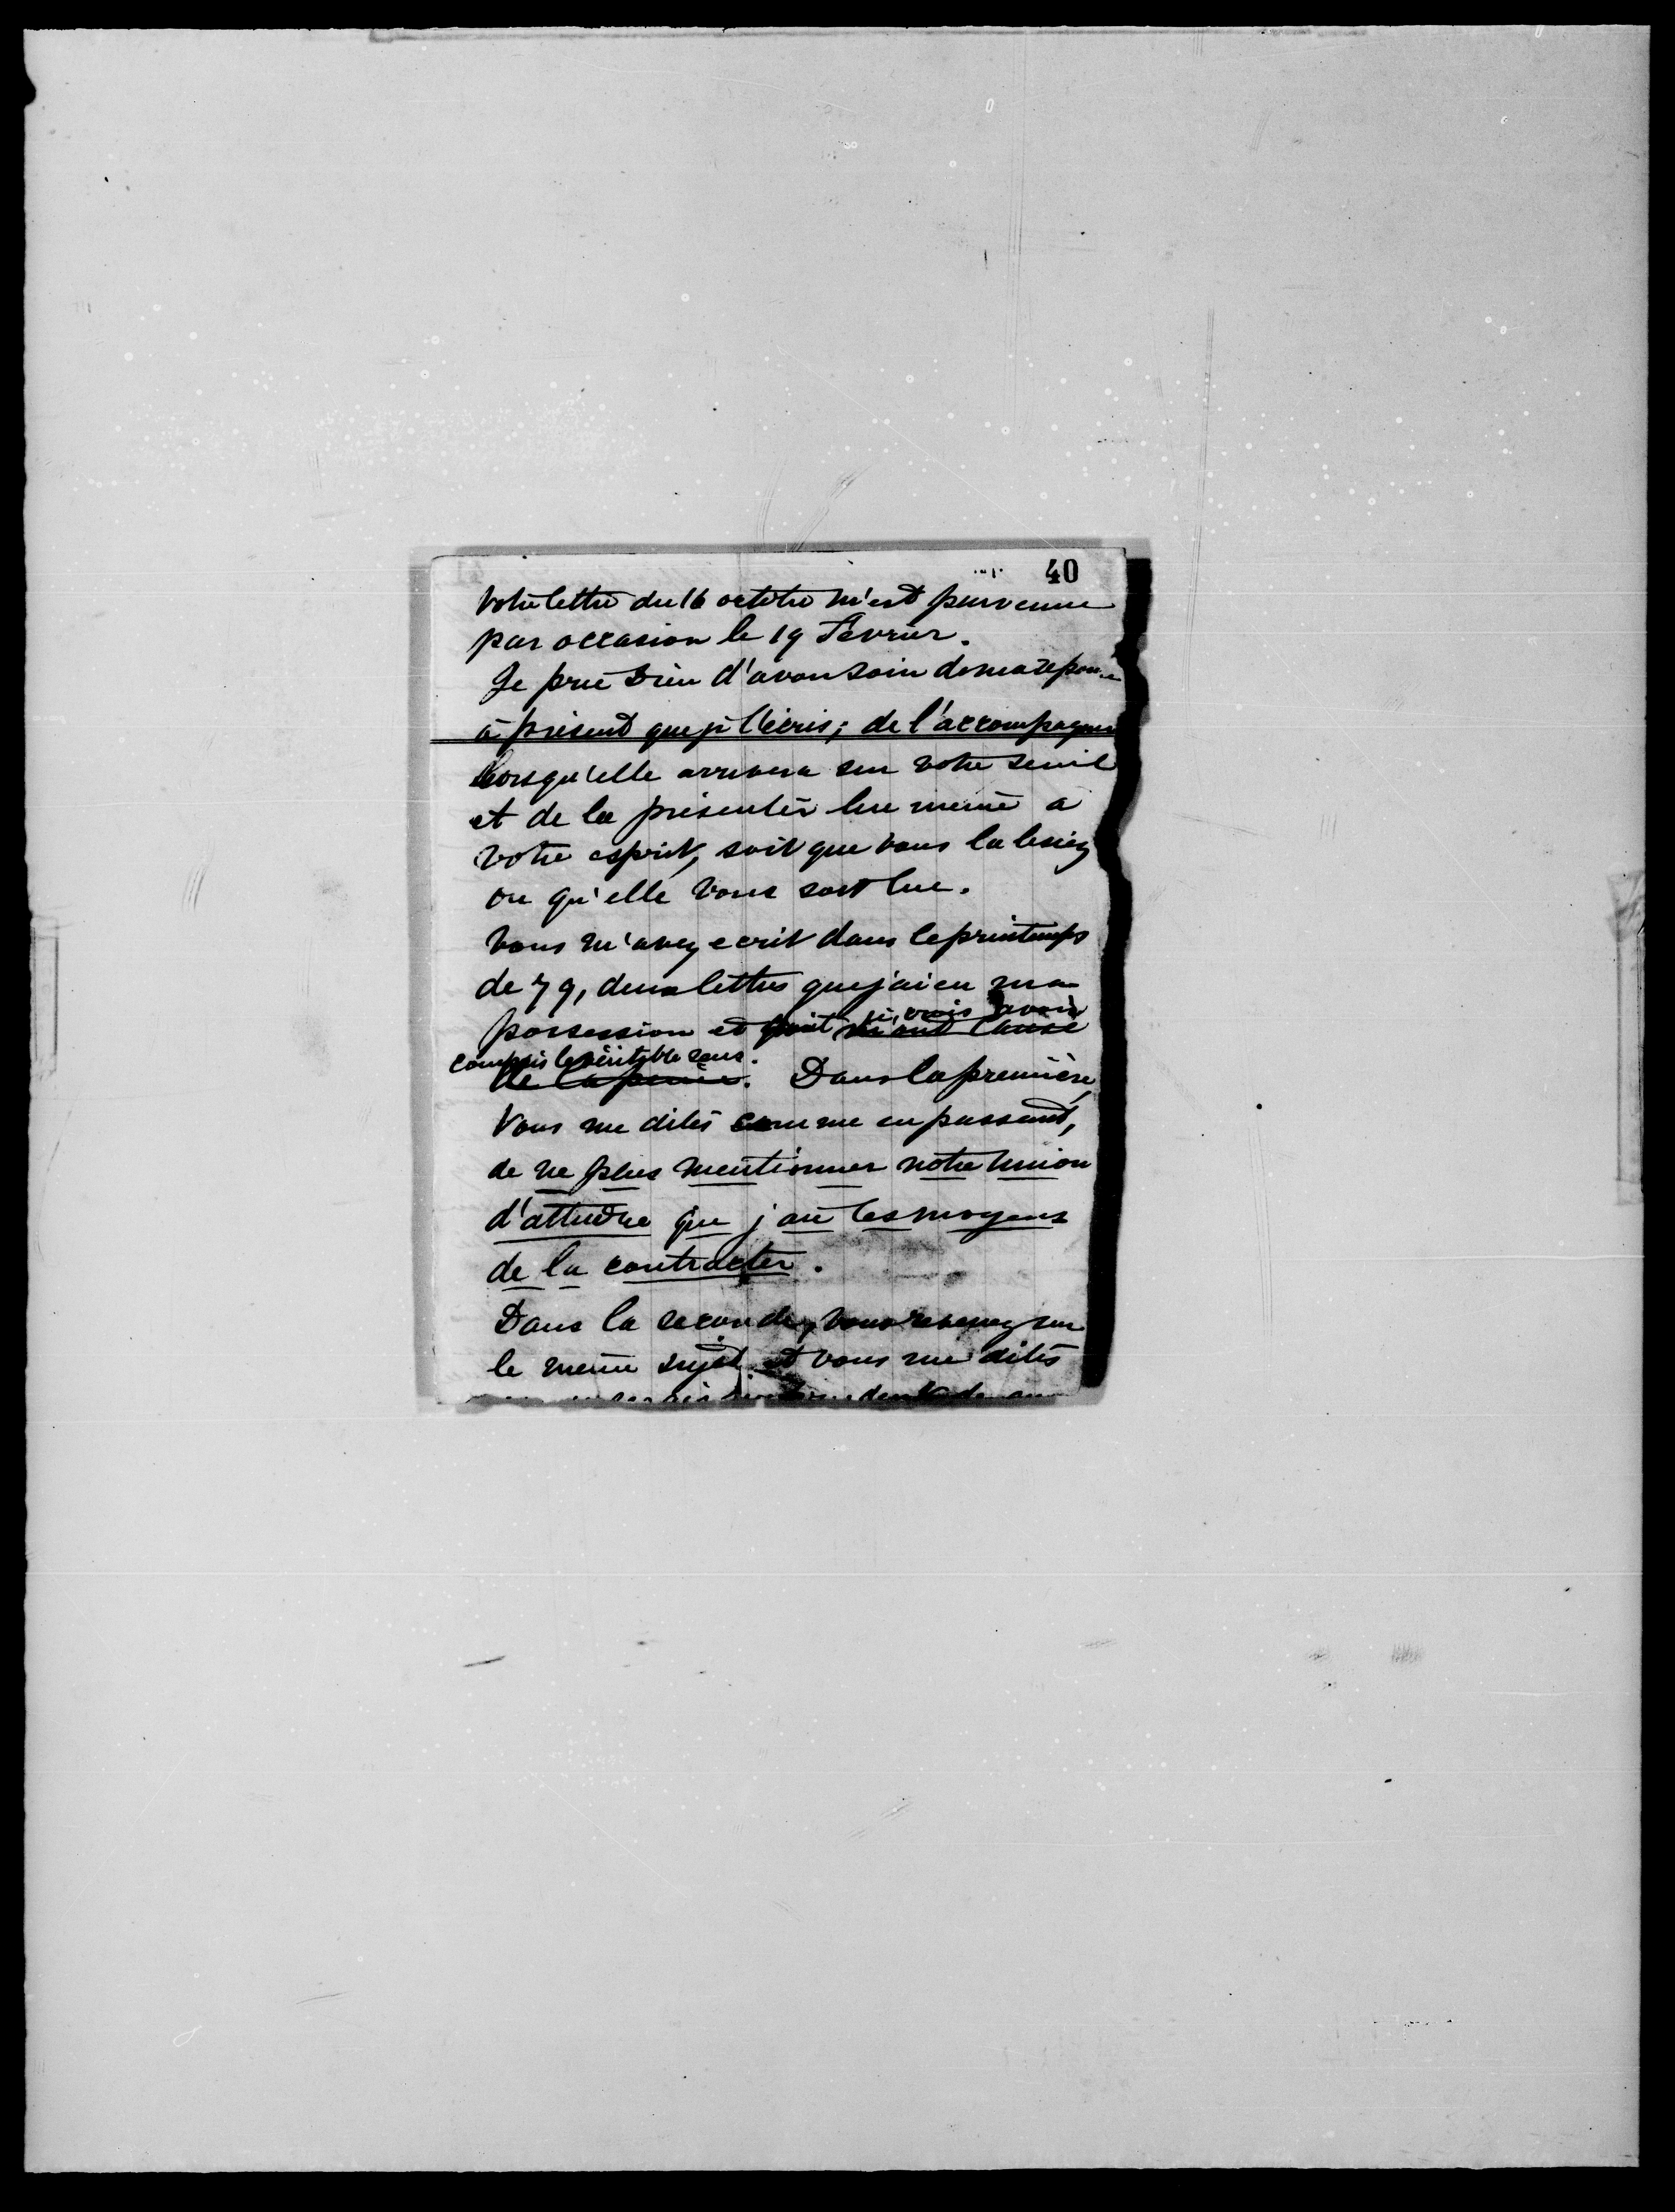 40
Votre lettre du 16 octobre m'est parvenue
par occasion le 19 Février.
Je prie Dieu d'avoir soin de ma réponse
à présent que je l'écris; de l'accompagner
lorsqu'elle arrivera sur votre seuil
et de la présenter lui même a
votre esprit, soit que vous la lisiez
ou qu'elle vous soit lue.
Vous m'avez ecrit dans le printemps
de 79, deux lettres que j'ai en ma
je, crois avoir
possession et dont m'ont causé
compris le véritable sens.
de la peine. Dans la première,
Vous me dites comme en passant,
de ne plus mentionner notre Union
d'attendre que j'aie les moyens
de la contracter.
Dans la seconde, vous revenez sur
le même sujet et vous me dites